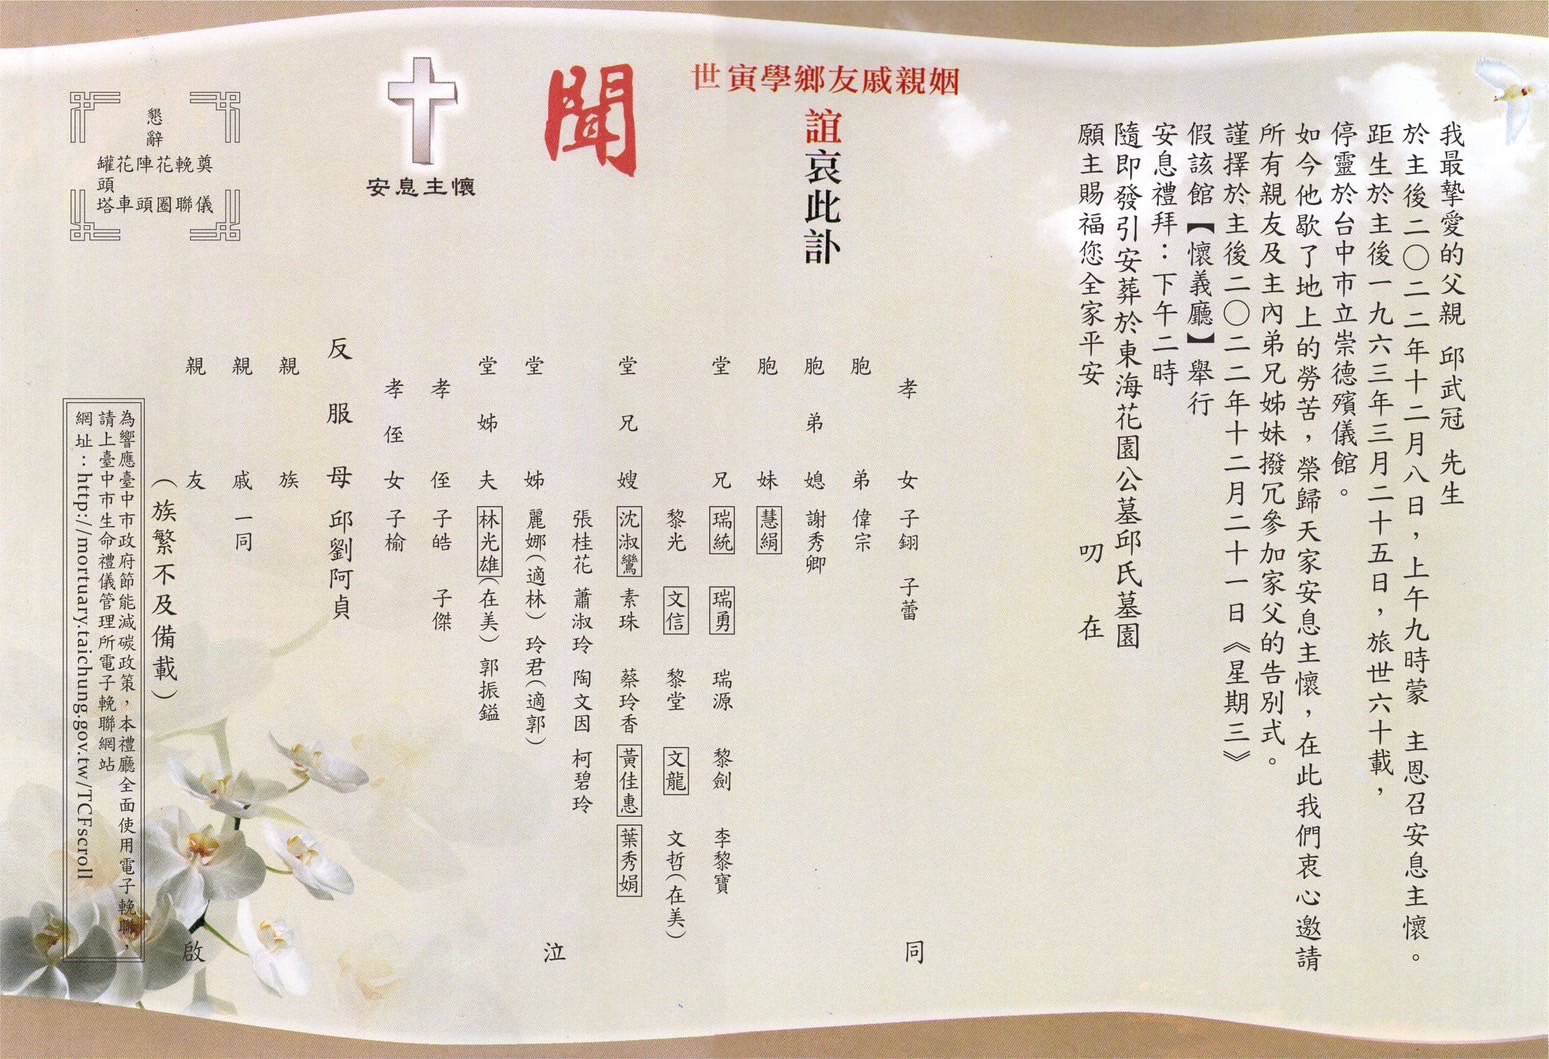 我最摯愛的父親 邱武冠 先生
於主後二〇二二年十二月八日，上午九時蒙 主恩召安息主懷。
距生於主後一九六三年三月二十五日，旅世六十載，
停靈於台中市立崇德殯儀館。
如今他歇了地上的勞苦，榮歸天家安息主懷，在此我們衷心邀請
所有親友及主內弟兄姊妹撥冗參加家父的告別式。
謹擇於主後二〇二二年十二月二十一日《星期三》
假該館【懷義廳】舉行
安息禮拜：下午二時
隨即發引安葬於東海花園公墓邱氏墓園
願主賜福您全家平安 叨 在
世寅學鄉友戚親姻
誼哀此訃
聞
安息主懷
孝女 子翎 子蕾 同
胞弟 偉宗
胞弟媳 謝秀卿
胞妹 慧絹
堂兄 瑞統 瑞勇 瑞源 黎劍 李黎寶
黎光 文信 黎堂 文龍 文哲(在美)
堂兄嫂 沈淑鸞 素珠 蔡玲香 黃佳惠 葉秀娟
張桂花 蕭淑玲 陶文因 柯碧玲
堂姊 麗娜(適林) 玲君(適郭) 泣
堂姊夫 林光雄(在美) 郭振鎰
孝侄 子皓 子傑
孝侄女 子榆
反服母 邱劉阿貞
親族
親戚 一同
親友 啟
(族繁不及備載)
懇辭
罐花陣花輓奠
頭
塔車頭圈聯儀
為響應臺中市政府節能減碳政策，本禮廳全面使用電子輓聯，
請上臺中市生命禮儀管理所電子輓聯網站
網址：http://mortuary.taichung.gov.tw/TCFscroll